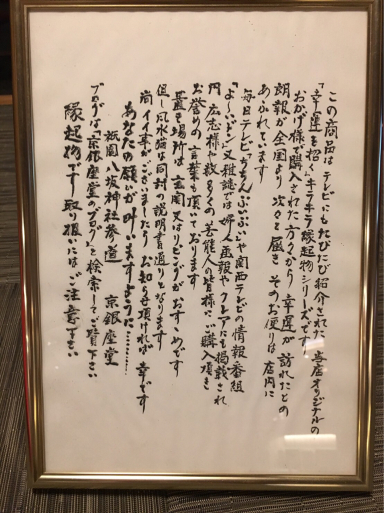 この商品は テレビにもたびたび紹介された 当店オリジナルの
「幸運を招くキラキラ縁起物シリーズ」です
おかげ様で購入された方々から 幸運が訪れたとの
朗報が全国より 次々と届き そのお便りは 店内に
あふれています
毎日テレビ「ちちんぷいぷい」や関西テレビの情報番組
「よ〜いドン」又 雑誌では 婦人画報やクレアにも掲載され
円 広志様や数多くの芸能人の皆様に ご購入頂き
お誉めの言葉も頂いております
置き場所は 玄関 又はリビングがおすすめです
但し 風水猫は同封の説明書通りとなります
尚 イイ事がございましたら お知らせ頂ければ 幸いです
あなたの願いが叶いますように………
祇園 八坂神社参道 京銀座堂
ブログは「京銀座堂のブログ」と検索してご覧下さい
縁起物です 取り扱いにはご注意下さい